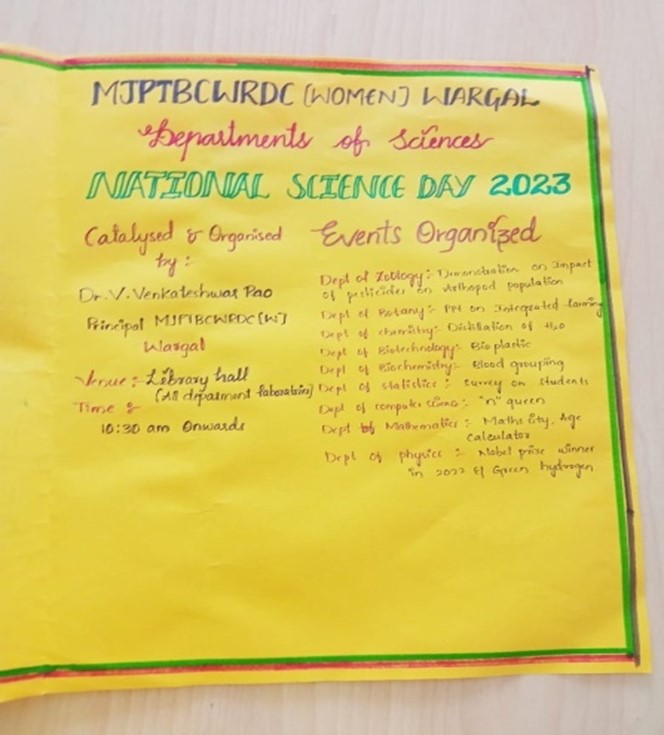 MJPTBCWRDC [WOMEN] WARGAL
Departments of Sciences
NATIONAL SCIENCE DAY 2023
Catalysed & Organised
by :
Dr. V. Venkateshwar Rao
Principal MJPTBCWRDC [W]
Wargal
Venue :- Library hall
(All department laboratories)
Time :-
10:30 am Onwards
Events Organized
Dept of Zoology :- Demonstration on Impact
of pesticides on Arthopod population
Dept of Botany :- PPt on Integrated farming
Dept of chemistry :- Distillation of H2O
Dept of Biotechnology :- Bio plastic
Dept of Biochemistry :- Blood grouping
Dept of statistics :- survey on students
Dept of computer science :- "n" queen
Dept of Mathematics :- Maths city, Age
calculator
Dept of physics :- Nobel prize winner
in 2022 & Green hydrogen